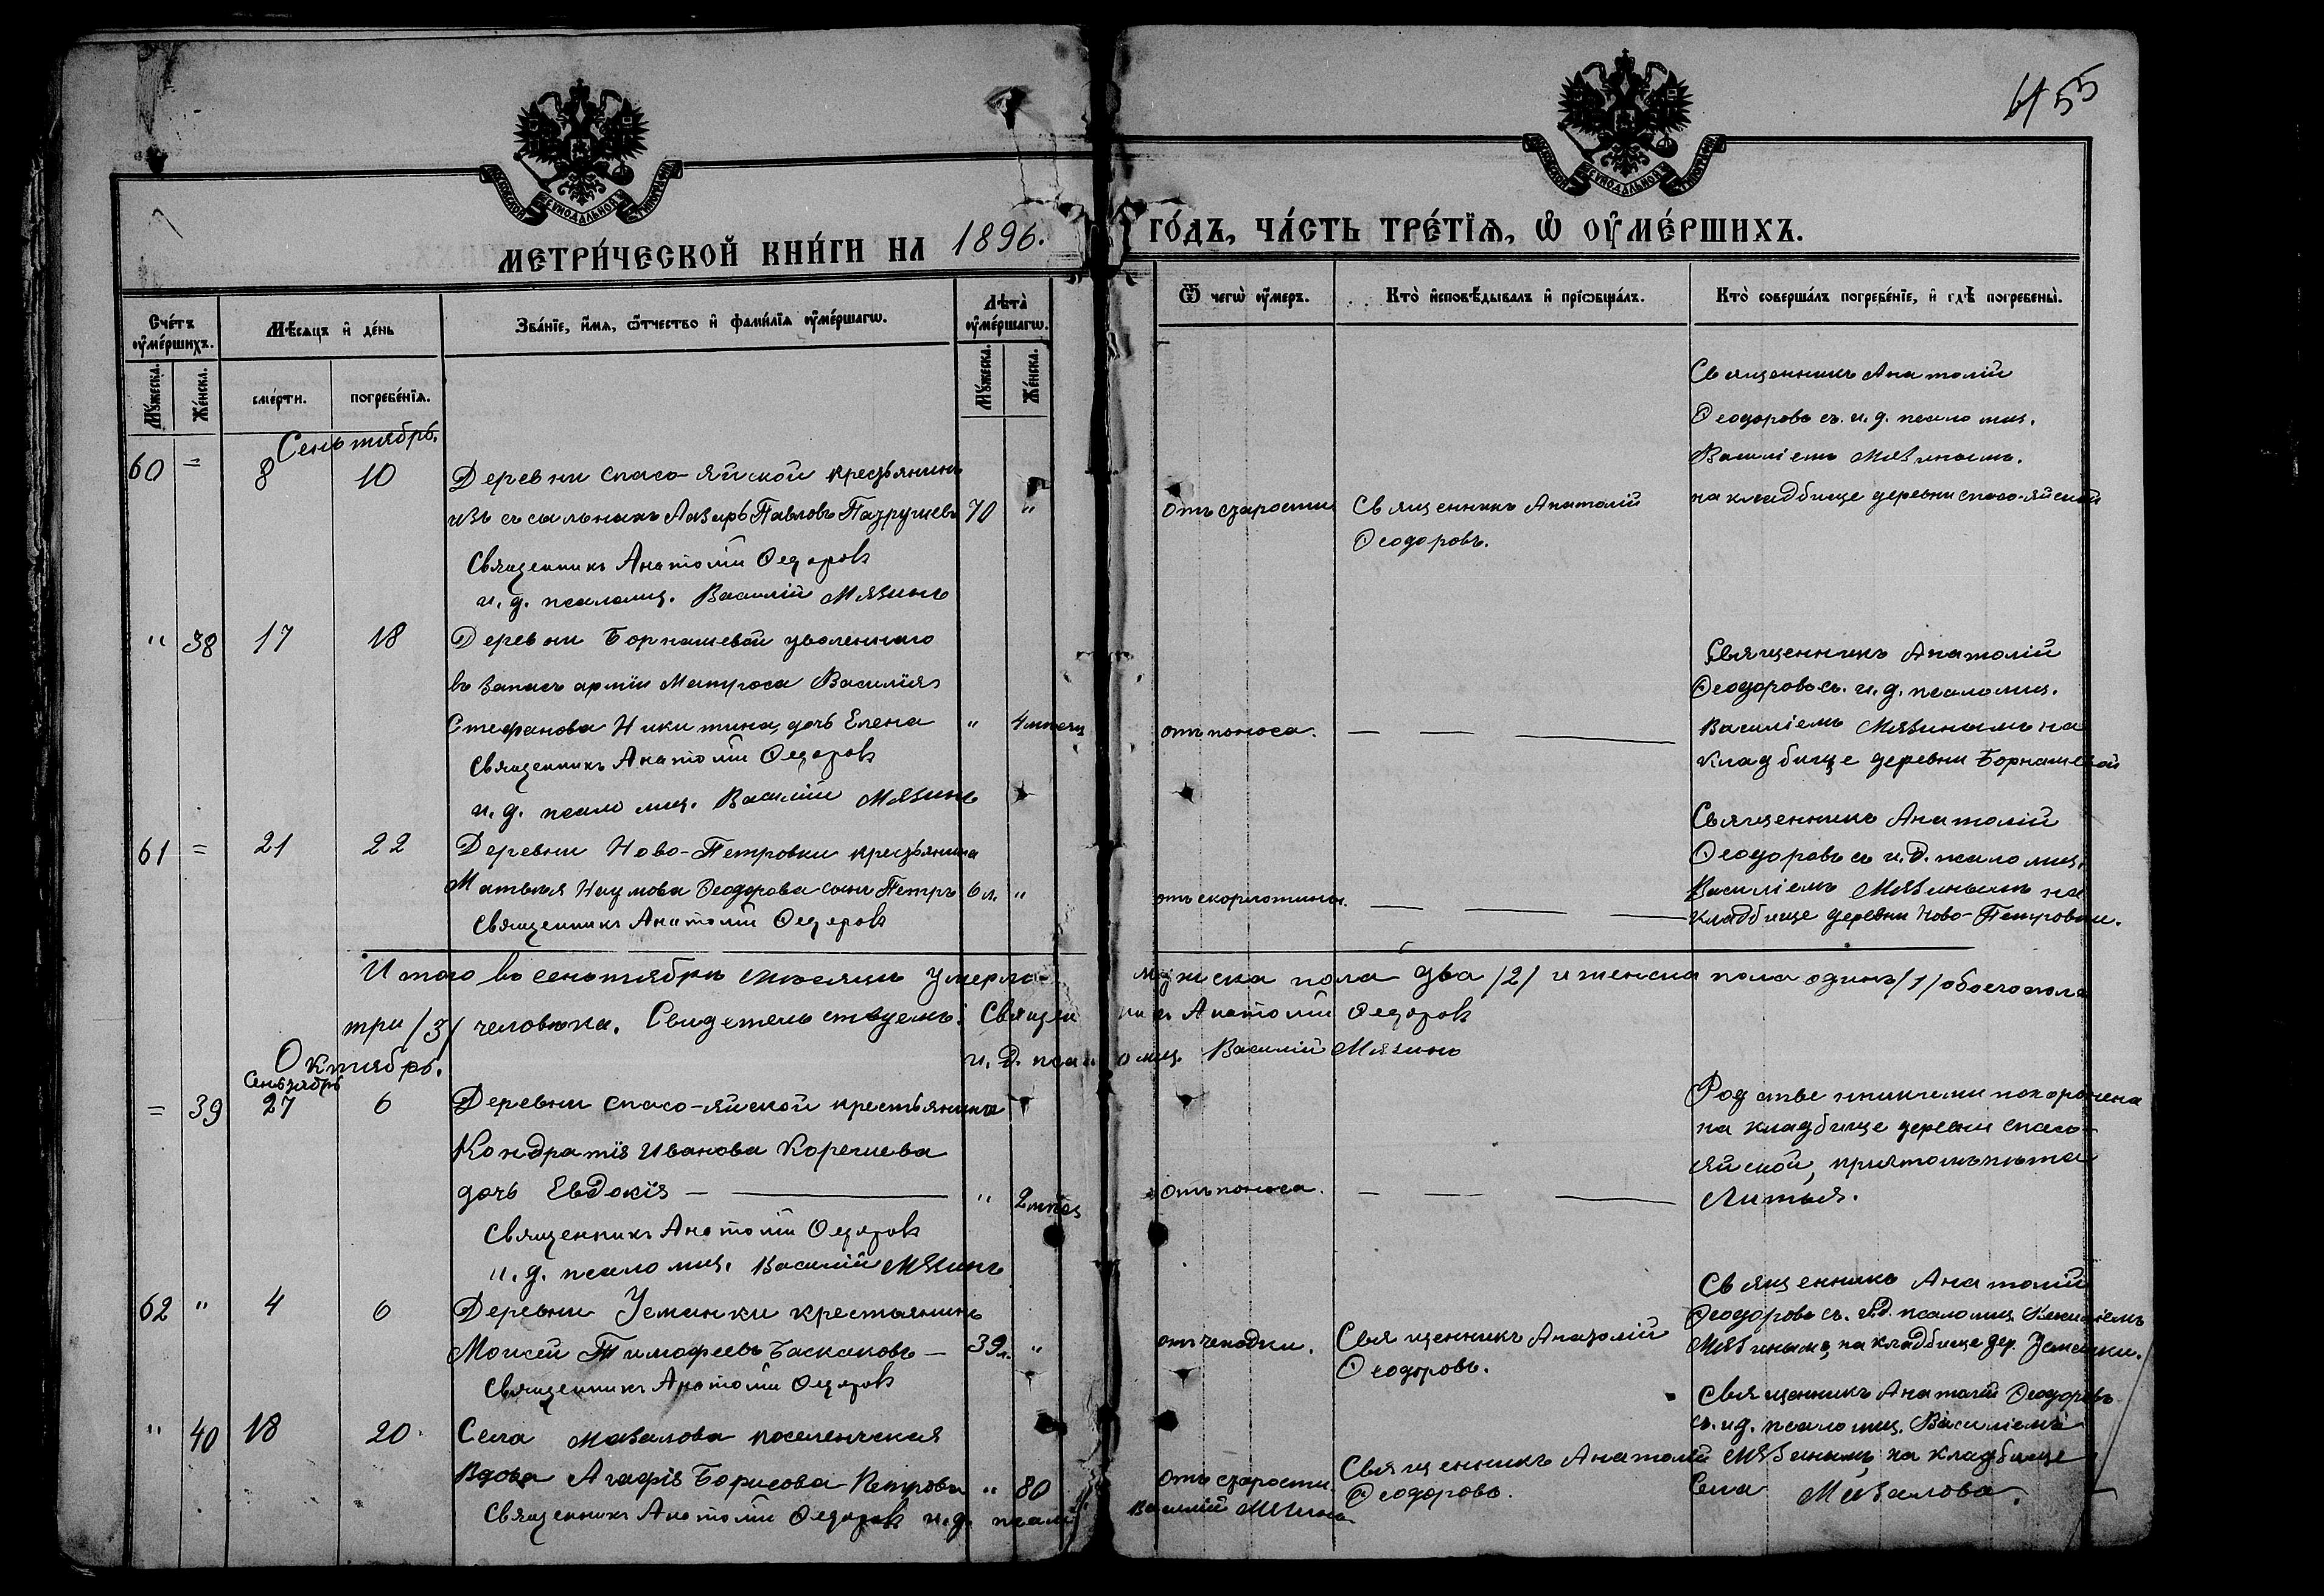 61 55
МОСКОВСКОЙ СѴНОДАЛЬНОЙ ТИПОГРАФІИ
МОСКОВСКОЙ СѴНОДАЛЬНОЙ ТИПОГРАФІИ
МЕТРИ́ЧЕСКОЙ КНИ́ГИ НА 1896.
ГО́ДЪ, ЧА́СТЬ ТРЕ́ТЇѦ, Ѡ҆ ОУ҆МЕ́РШИХЪ.
Сче́тъ оу҆ме́ршихъ.
Мѣ́сяцъ и҆ де́нь
Зва́нїе, и҆́мѧ, ѻ҆́тчество и҆ фами́лїѧ оу҆ме́ршагѡ.
Лѣта̀ оу҆ме́ршагѡ.
Ѿ чегѡ̀ оу҆́меръ.
Кто̀ и҆сповѣ́дывалъ и҆ прїѡбща́лъ.
Кто̀ соверша́лъ погребе́нїе, и҆ гдѣ̀ погребены̀.
Мꙋ́жеска.
Же́нска.
сме́рти.
погребе́нїѧ.
Мꙋ́жеска.
Же́нска.
Сеньтябрь.
60 = 8 10 Деревни Спасо-Яйской крестьянинъ
изъ ссыльныхъ Лазарь Павловъ 70 "
Священникъ Анатолій Ѳедоровъ
и. д. псаломщ. Василій Мязинъ
отъ старости
Священникъ Анатолій
Ѳеодоровъ.
Священникъ Анатолій
Ѳеодоровъ съ и. д. псаломщ.
Василіемъ Мязинымъ.
на кладбище деревни Спасо-Яйской
" 38 17 18 Деревни Борнашевой уволеннаго
въ запасъ арміи Матроса Василія
Стефанова Никитина, дочь Елена " 4 мѣсяц
Священникъ Анатолій Ѳедоровъ
и. д. псаломщ. Василій Мязинъ
отъ поноса. — — —
Священникъ Анатолій
Ѳеодоровъ съ. и. д. псаломщ.
Василіемъ Мязинымъ на
кладбище деревни Борнашевой
61 = 21 22 Деревни Ново-Петровки крестьянина
Матвѣя Наумова Ѳеодорова сынъ Петръ 6 л. "
Священникъ Анатолій Ѳедоровъ
отъ скорлотины. — — —
Священникъ Анатолій
Ѳеодоровъ съ и. д. псаломщ.
Василіемъ Мязинымъ на
кладбище деревни Ново-Петровки.
Итого въ сеньтябрѣ мѣсяцѣ умерло мужска пола два /2/ и женска пола одинъ /1/ обоего пола
три /3/ человѣка. Свидетельствуемъ: Священникъ Анатолій Ѳедоровъ
и. д. псаломщ. Василій Мязинъ
Октябрь.
Сеньтябрь
= 39 27 6 Деревни Спасо-Яйской крестьянина
Кондратія Иванова Коренева
дочь Евдокія — " 2 мѣсяц
Священникъ Анатолій Ѳедоровъ
и. д. псаломщ. Василій Мязинъ
отъ поноса. — — —
Родственниками похоронена
на кладбище деревни Спасо-
Яйской, при томъ пѣта
Литья.
62 " 4 6 Деревни Усманки крестьянинъ
Моисей Тимофеевъ Баскаковъ — 39 л. "
Священникъ Анатолій Ѳедоровъ
отъ чаходки.
Священникъ Анатолій
Ѳеодоровъ.
Священникъ Анатолій
Ѳеодоровъ съ. и. д. псаломщ. Василіемъ
Мязинымъ, на кладбище дер. Усманки.
" 40 18 20 Села Мазалова поселенческая
Вдова Агафія Борисова Петрова " 80
Священникъ Анатолій Ѳедоровъ и. д. псалом
Василій Мязинъ
отъ старости.
Священникъ Анатолій
Ѳеодоровъ.
Священникъ Анатолій Ѳеодоровъ
съ. и. д. псаломщ. Василіемъ
Мязинымъ, на кладбище
Села Мазалова.